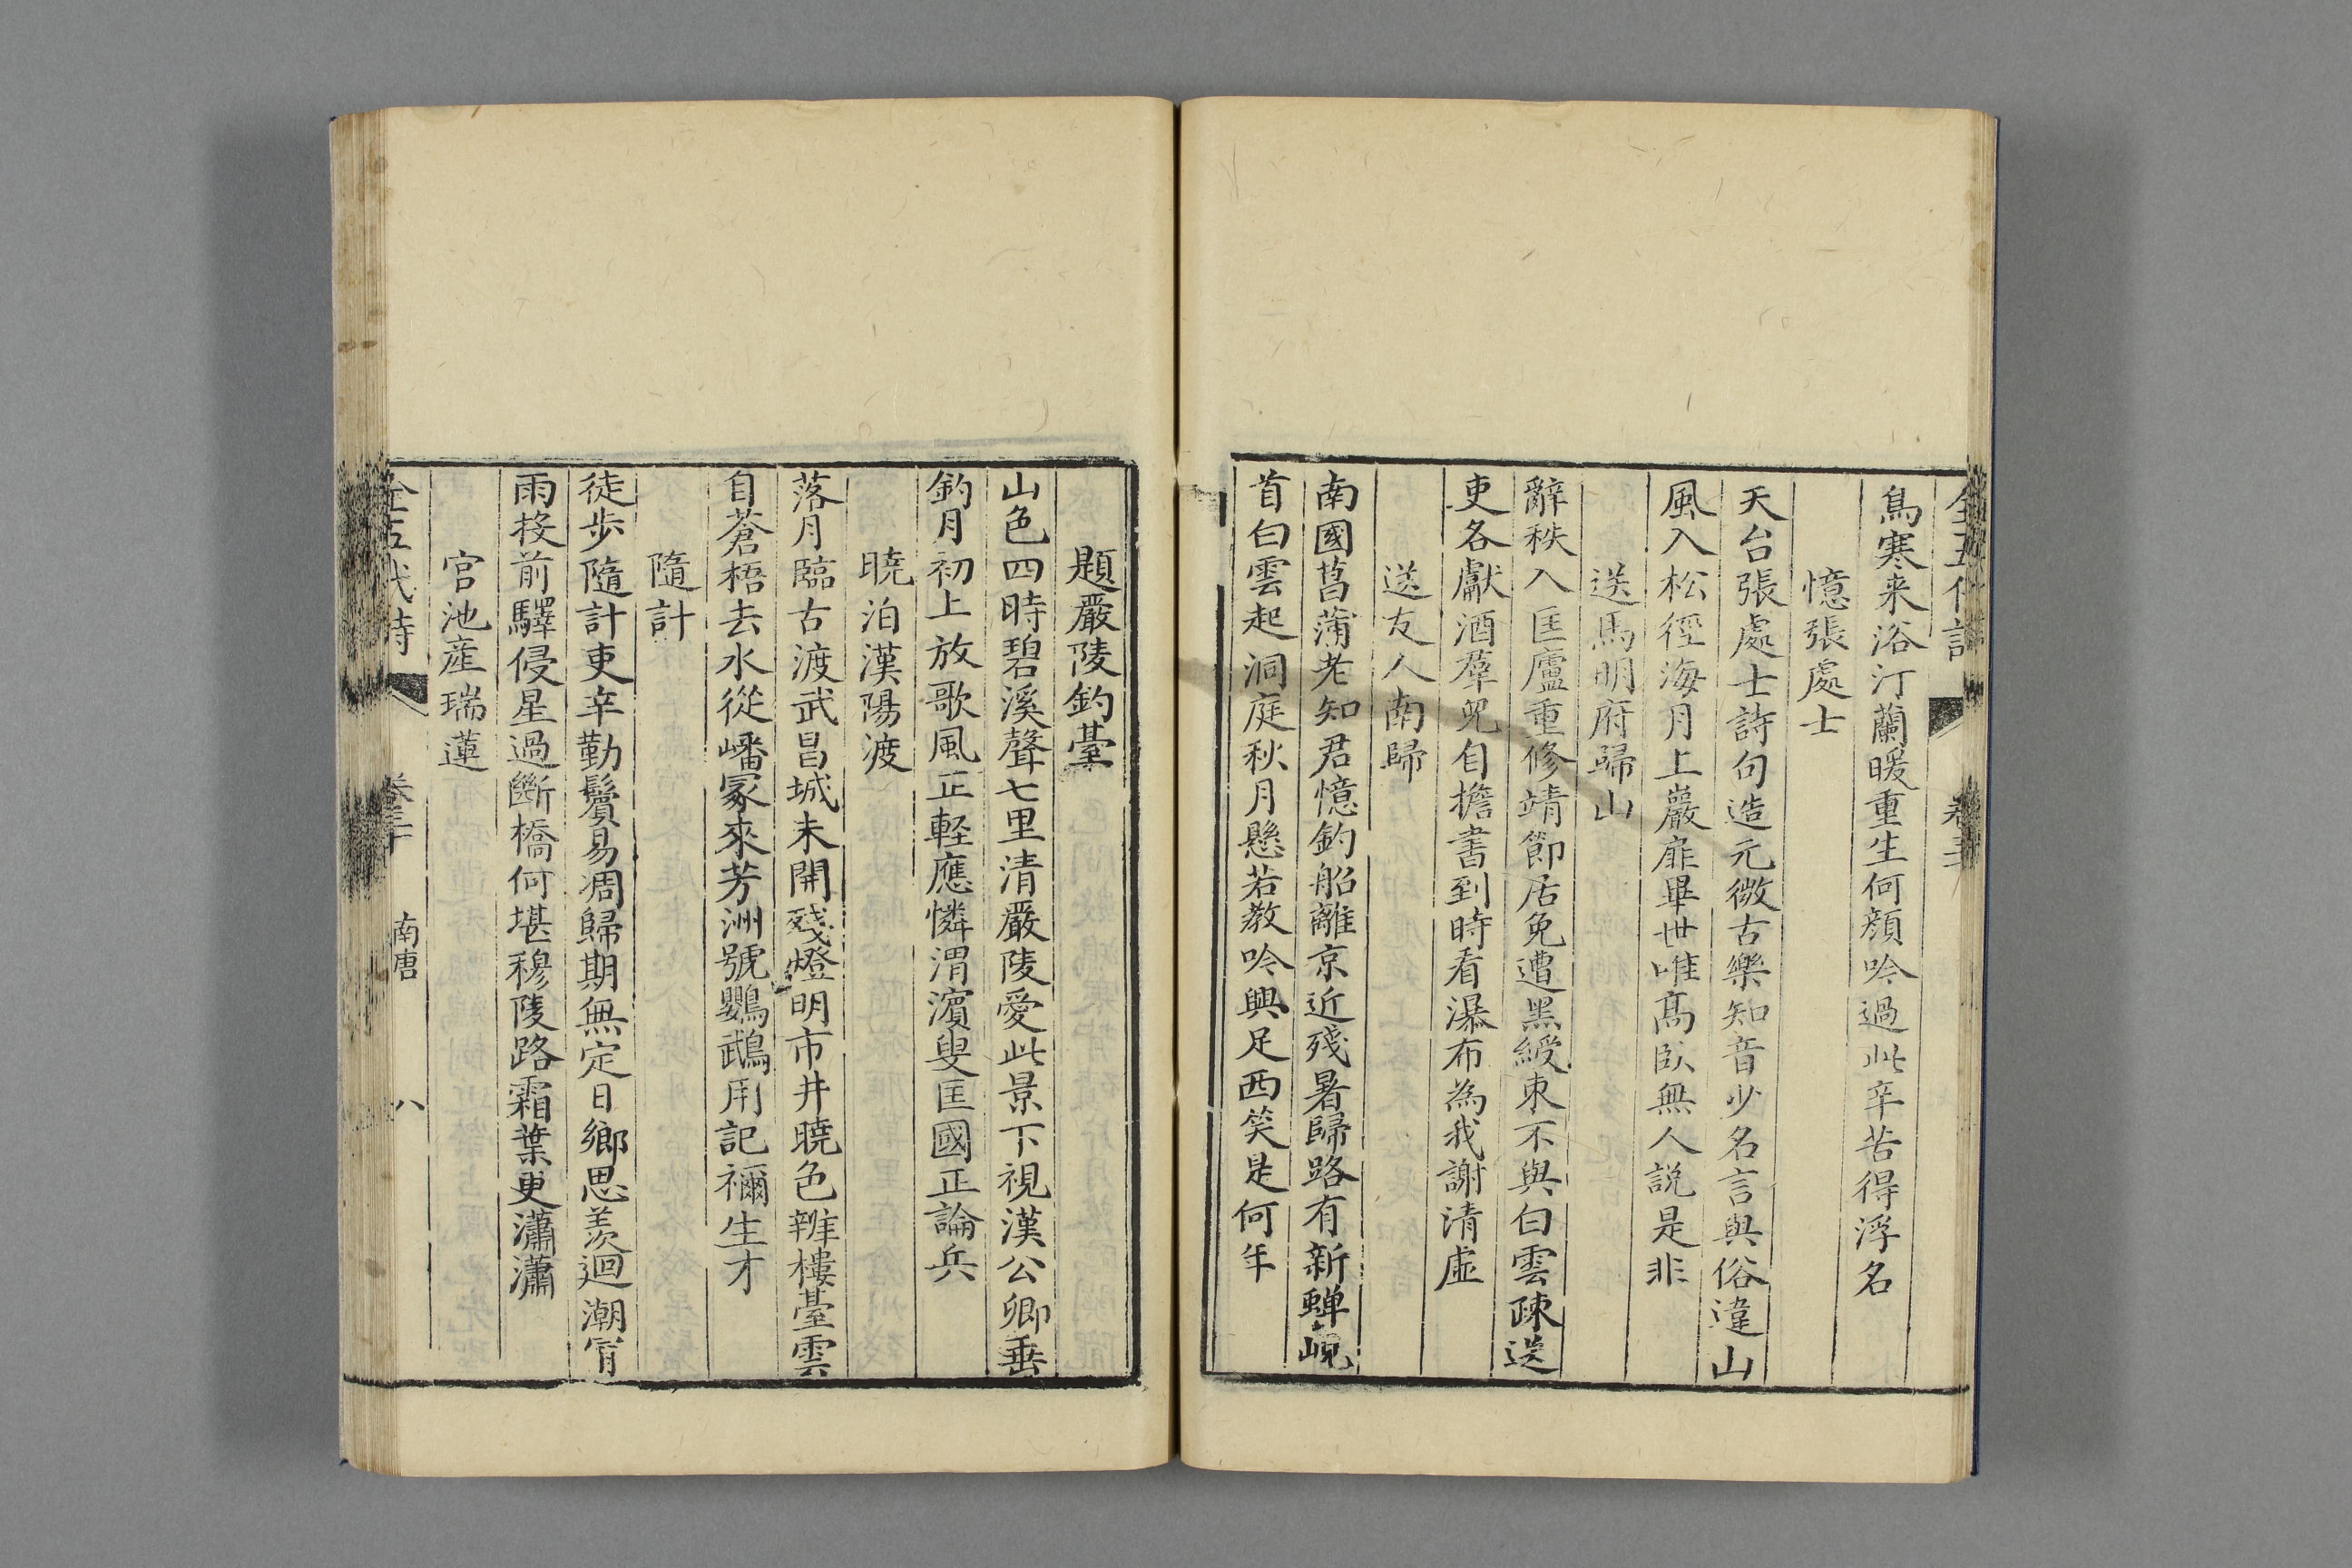 全五代詩 卷三十
鳥寒来浴汀蘭暖重生何顔吟過此辛苦得浮名
憶張處士
天台張處士詩句造元微古樂知音少名言與俗違山
風入松徑海月上巖扉畢世唯髙臥無人説是非
送馬明府歸山
辭秩入匡廬重修靖節居免遭黑綬束不與白雲疎送
吏各獻酒羣兒自擔書到時看瀑布為我謝清虛
送友人南歸
南國菖蒲老知君憶釣船離京近殘暑歸路有新蟬峴
首白雲起洞庭秋月懸若教吟興足西笑是何年
題嚴陵釣臺
山色四時碧溪聲七里清嚴陵愛此景下視漢公卿垂
釣月初上放歌風正軽應憐渭濵叟匡國正論兵
暁泊漢陽渡
落月臨古渡武昌城未開殘燈明市井暁色辨樓臺雲
自蒼梧去水從嶓冢來芳洲號鸚鵡用記禰生才
隨計
徒歩隨計吏辛勤鬢易凋歸期無定日鄉思羨迴潮冐
雨投前驛侵星過斷橋何堪穆陵路霜葉更瀟瀟
宫池産瑞蓮
全五代詩 卷三十 南唐 八